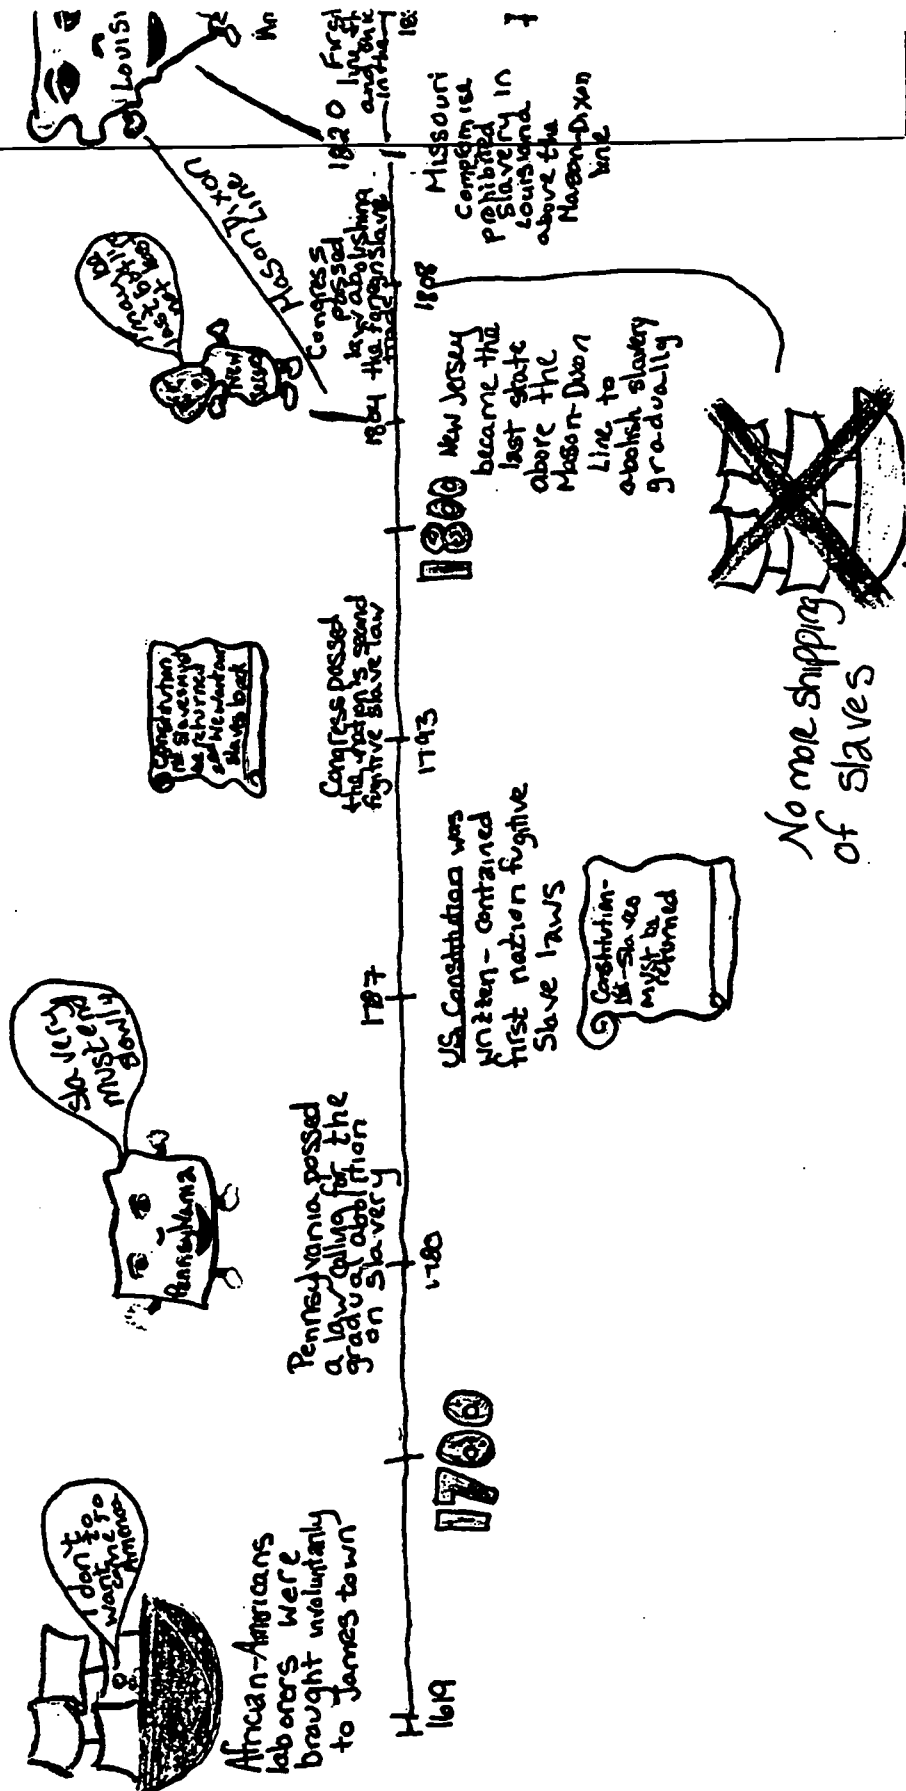 I don't
want to
come to
America
African-Americans
laborers were
brought involuntarily
to Jamestown
1619
1700
Slavery
must en
slowly
Pennsylvania
Pennsylvania passed
a law calling for the
gradual abolition
on slavery
1780
1787
US Constitution was
written - contained
first nation fugitive
Slave laws
Constitution-
1st-Slaves
must be
returned
Constitution
1st Slaves must
be returned
2nd We want our
slaves back
Congress passed
the nation's second
fugitive slave law
1793
1800
I may
be
last but
not
New
1804
New Jersey
became the
last state
above the
Mason-Dixon
Line to
abolish slavery
gradually
Mason Dixon
Line
Congress
passed
law abolishing
the foreign slave
trade
1808
No more shipping
of slaves
LOUISI
1820
Missouri
Compromise
prohibited
slavery in
Louisiana
above the
Mason-Dixon
line
First
in the
18